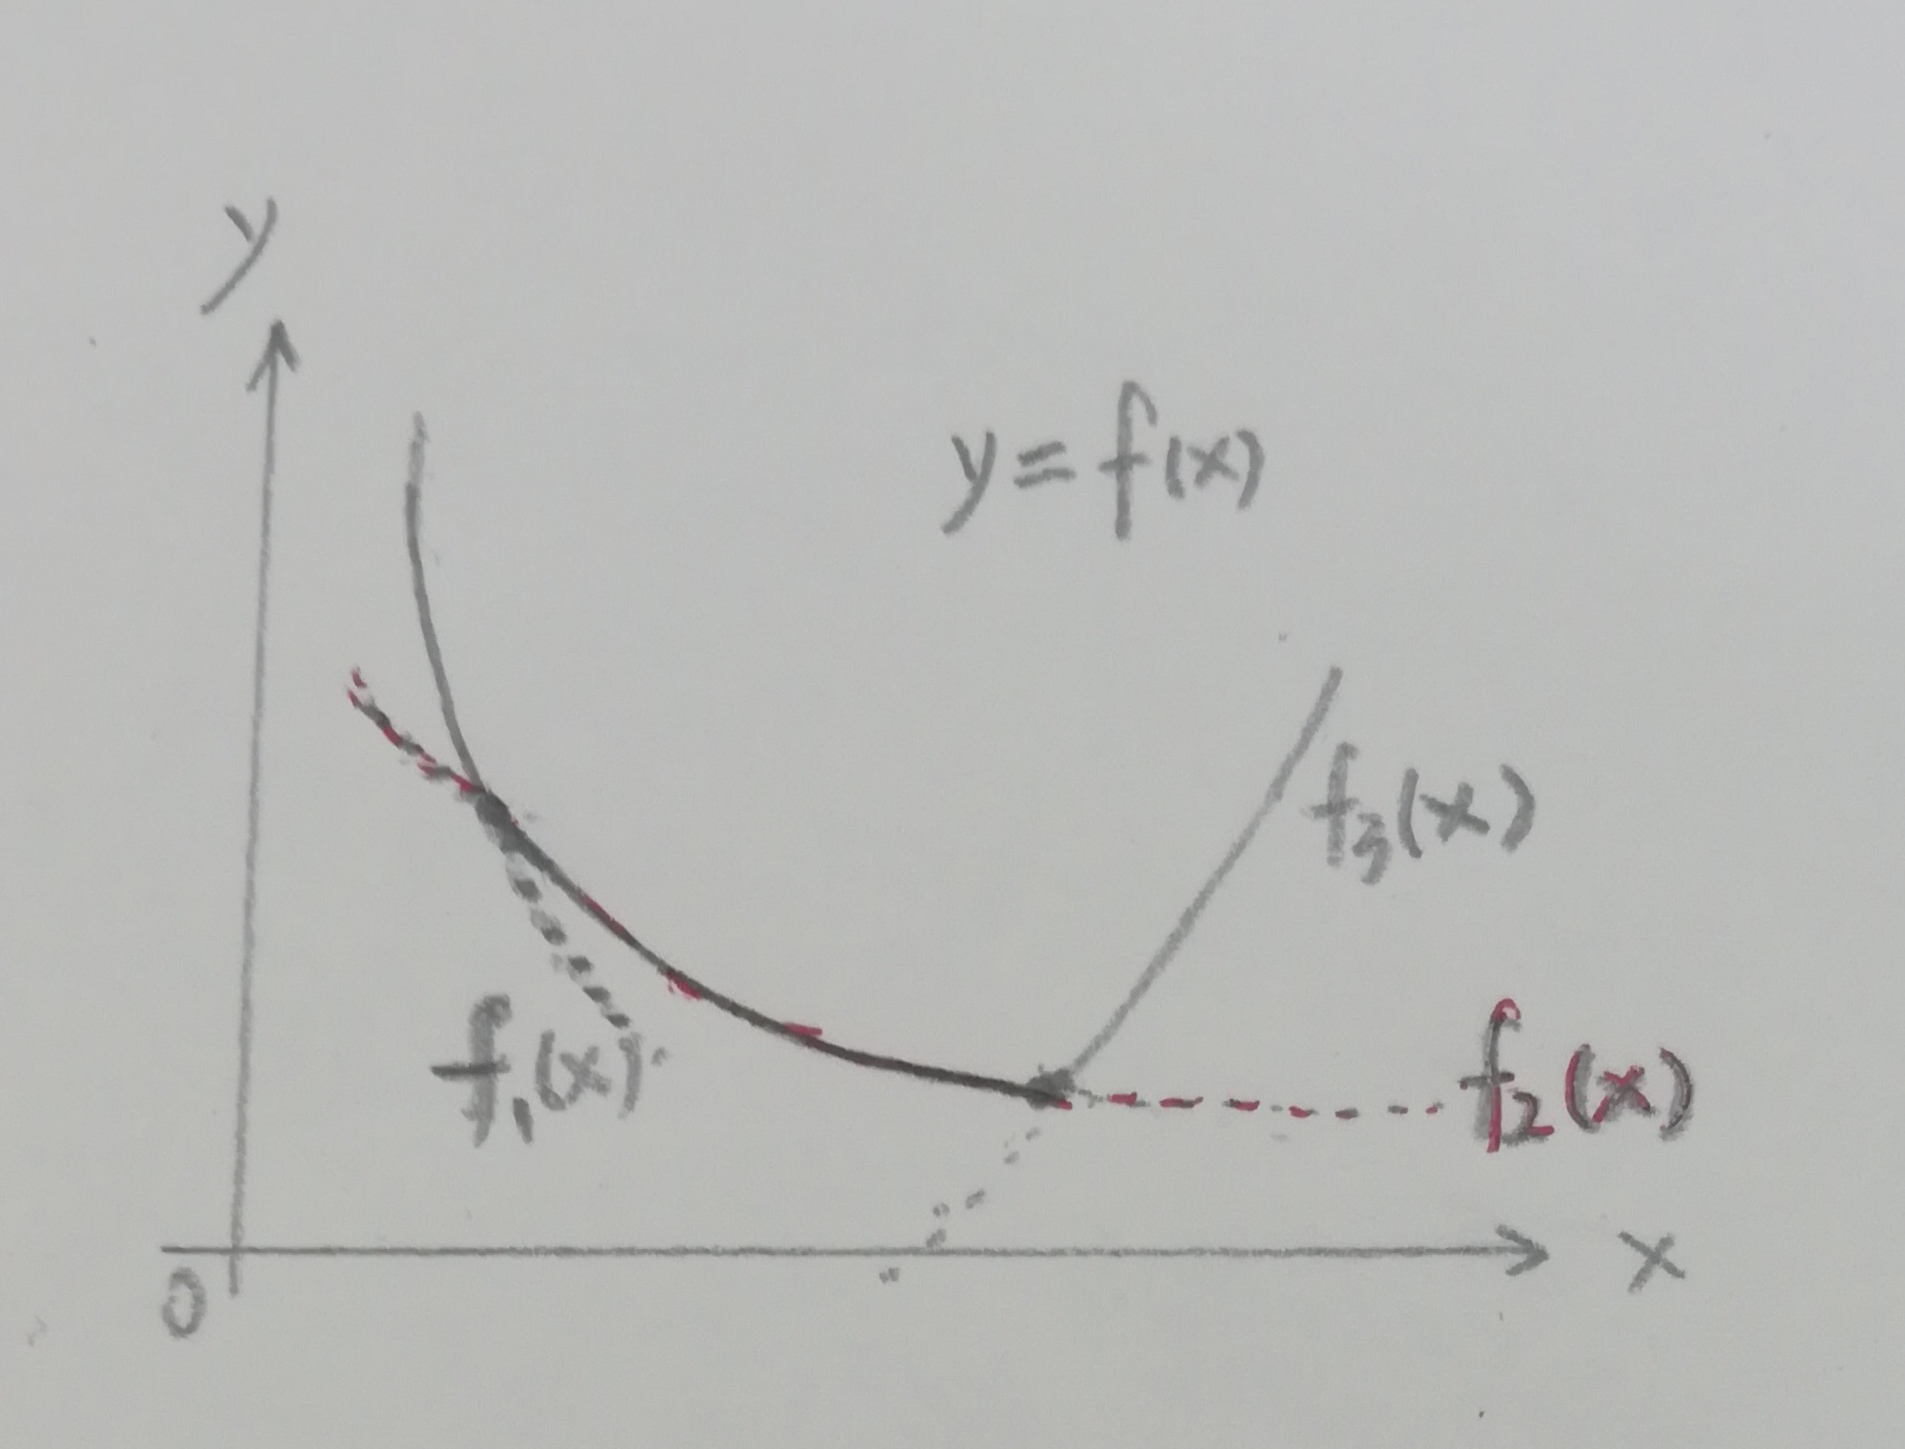 y
y = f(x)
f₃(x)
f₁(x)
f₂(x)
x
0